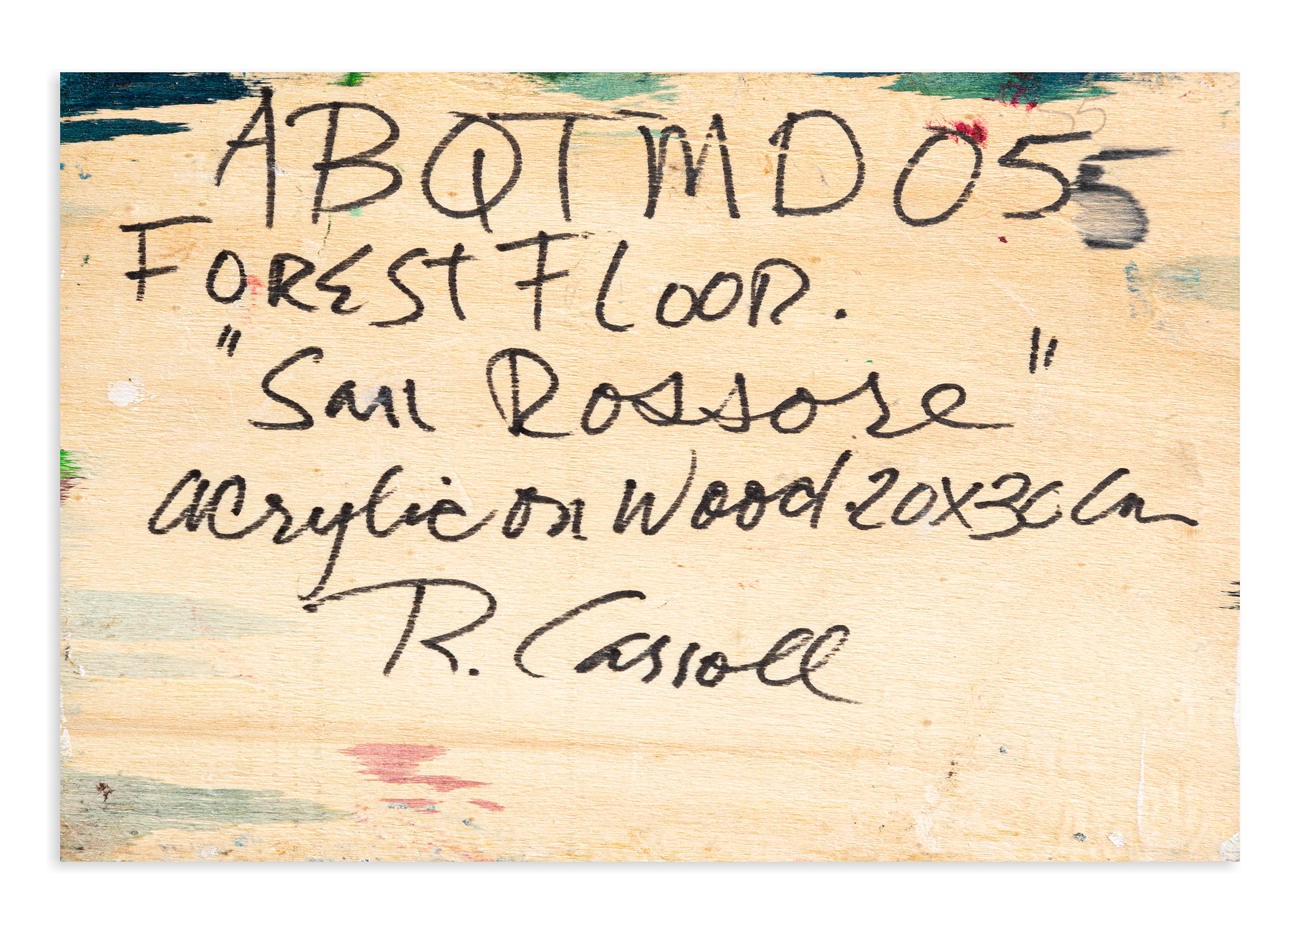 ABQTMD055
FOREST FLOOR.
"San Rossore"
acrylic on Wood 20x30 Cm
R. Cassoll